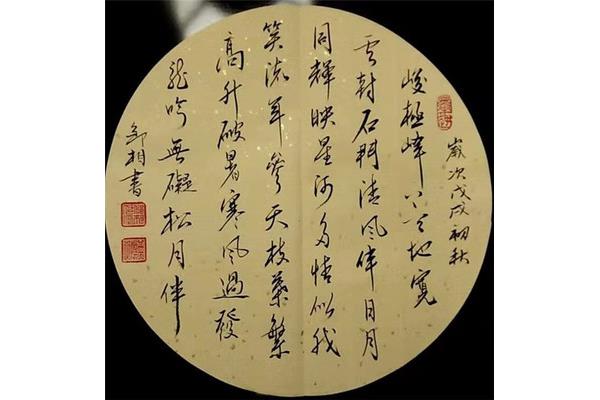 歲次戊戌初秋
峻極峰上天地寬
雲封石門清風伴日月
同輝映星河多情似我
笑流年參天枝葉繁
高升破暑寒風過發
龍吟無礙松月伴
鄒相書